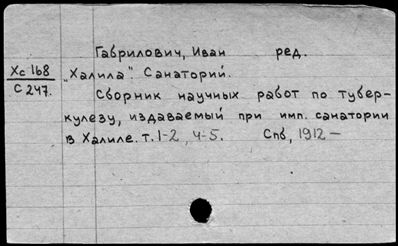 Габрилович, Иван ред.
Хс 168
С 247.
"Халила". Санаторий.
Сборник научных работ по тубер-
кулезу, издаваемый при имп. санатории
в Халиле. т. 1-2, 4-5. Спб, 1912 —